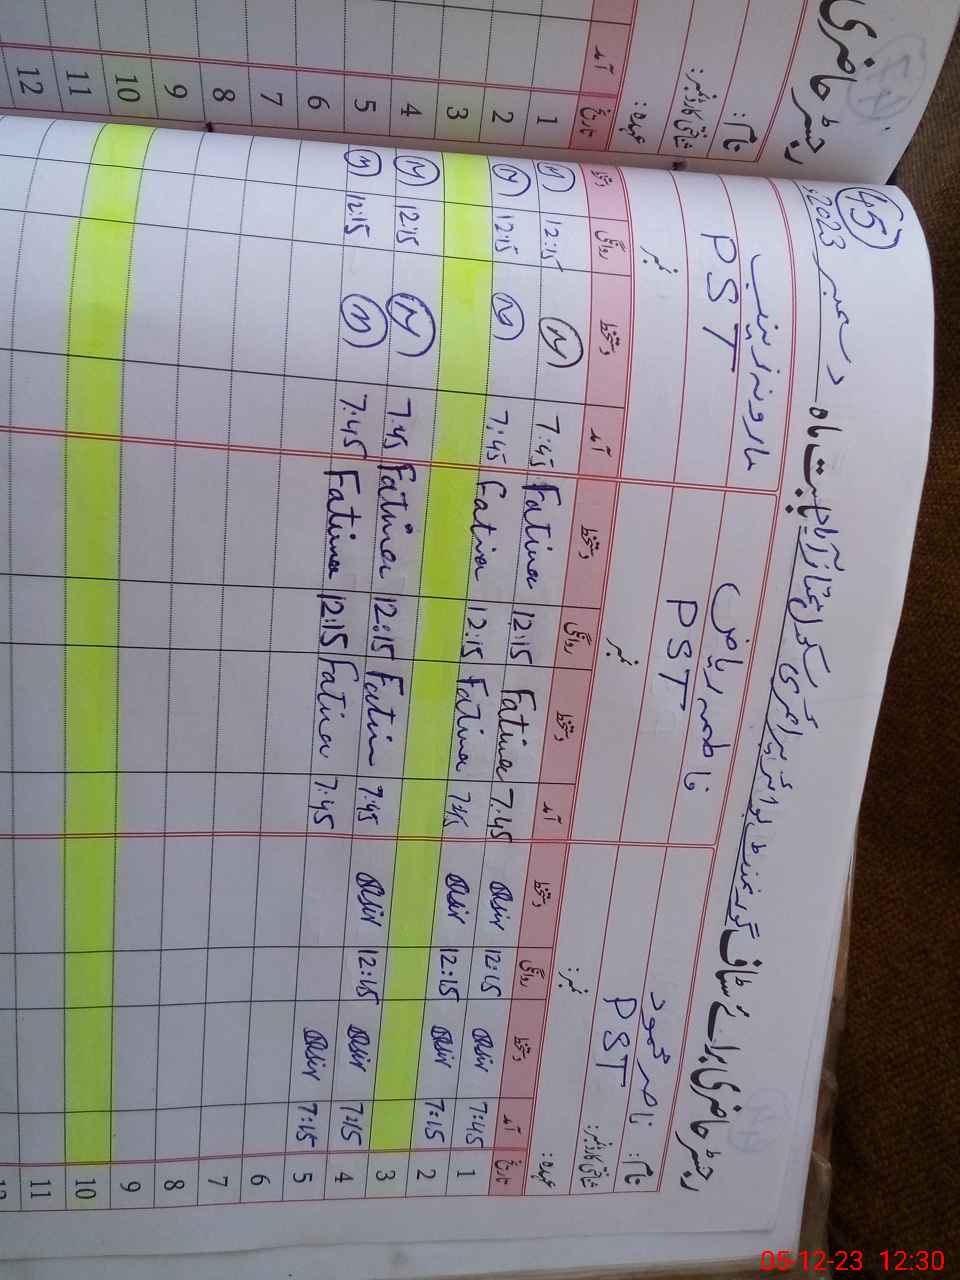 45
رجسٹر حاضری برائے سٹاف گورنمنٹ بوائز پرائمری سکول ممتاز آباد بابت ماہ دسمبر 2023ء
نام: ناصر محمود
فاطمہ ریاض
شناختی کارڈ نمبر:
عہدہ: PST
PST
PST
نمبر:
نمبر
نمبر
تاریخ آمد دستخط روانگی دستخط آمد دستخط روانگی دستخط آمد دستخط روانگی دستخط
1 7:45 Nasir 12:15 Nasir 7:45 Fatima 12:15 Fatima 7:45 12:15
2 7:15 Nasir 12:15 Nasir 7:45 Fatima 12:15 Fatima 7:45 12:15
3
4 7:15 Nasir 12:15 Nasir 7:45 Fatima 12:15 Fatima 7:45 12:15
5 7:15 Nasir 7:45 Fatima 12:15 Fatima 7:45 12:15
6
7
8
9
10
11
رجسٹر حاضری
نام:
شناختی کارڈ نمبر:
عہدہ:
تاریخ آمد
1
2
3
4
5
6
7
8
9
10
11
12
05-12-23 12:30